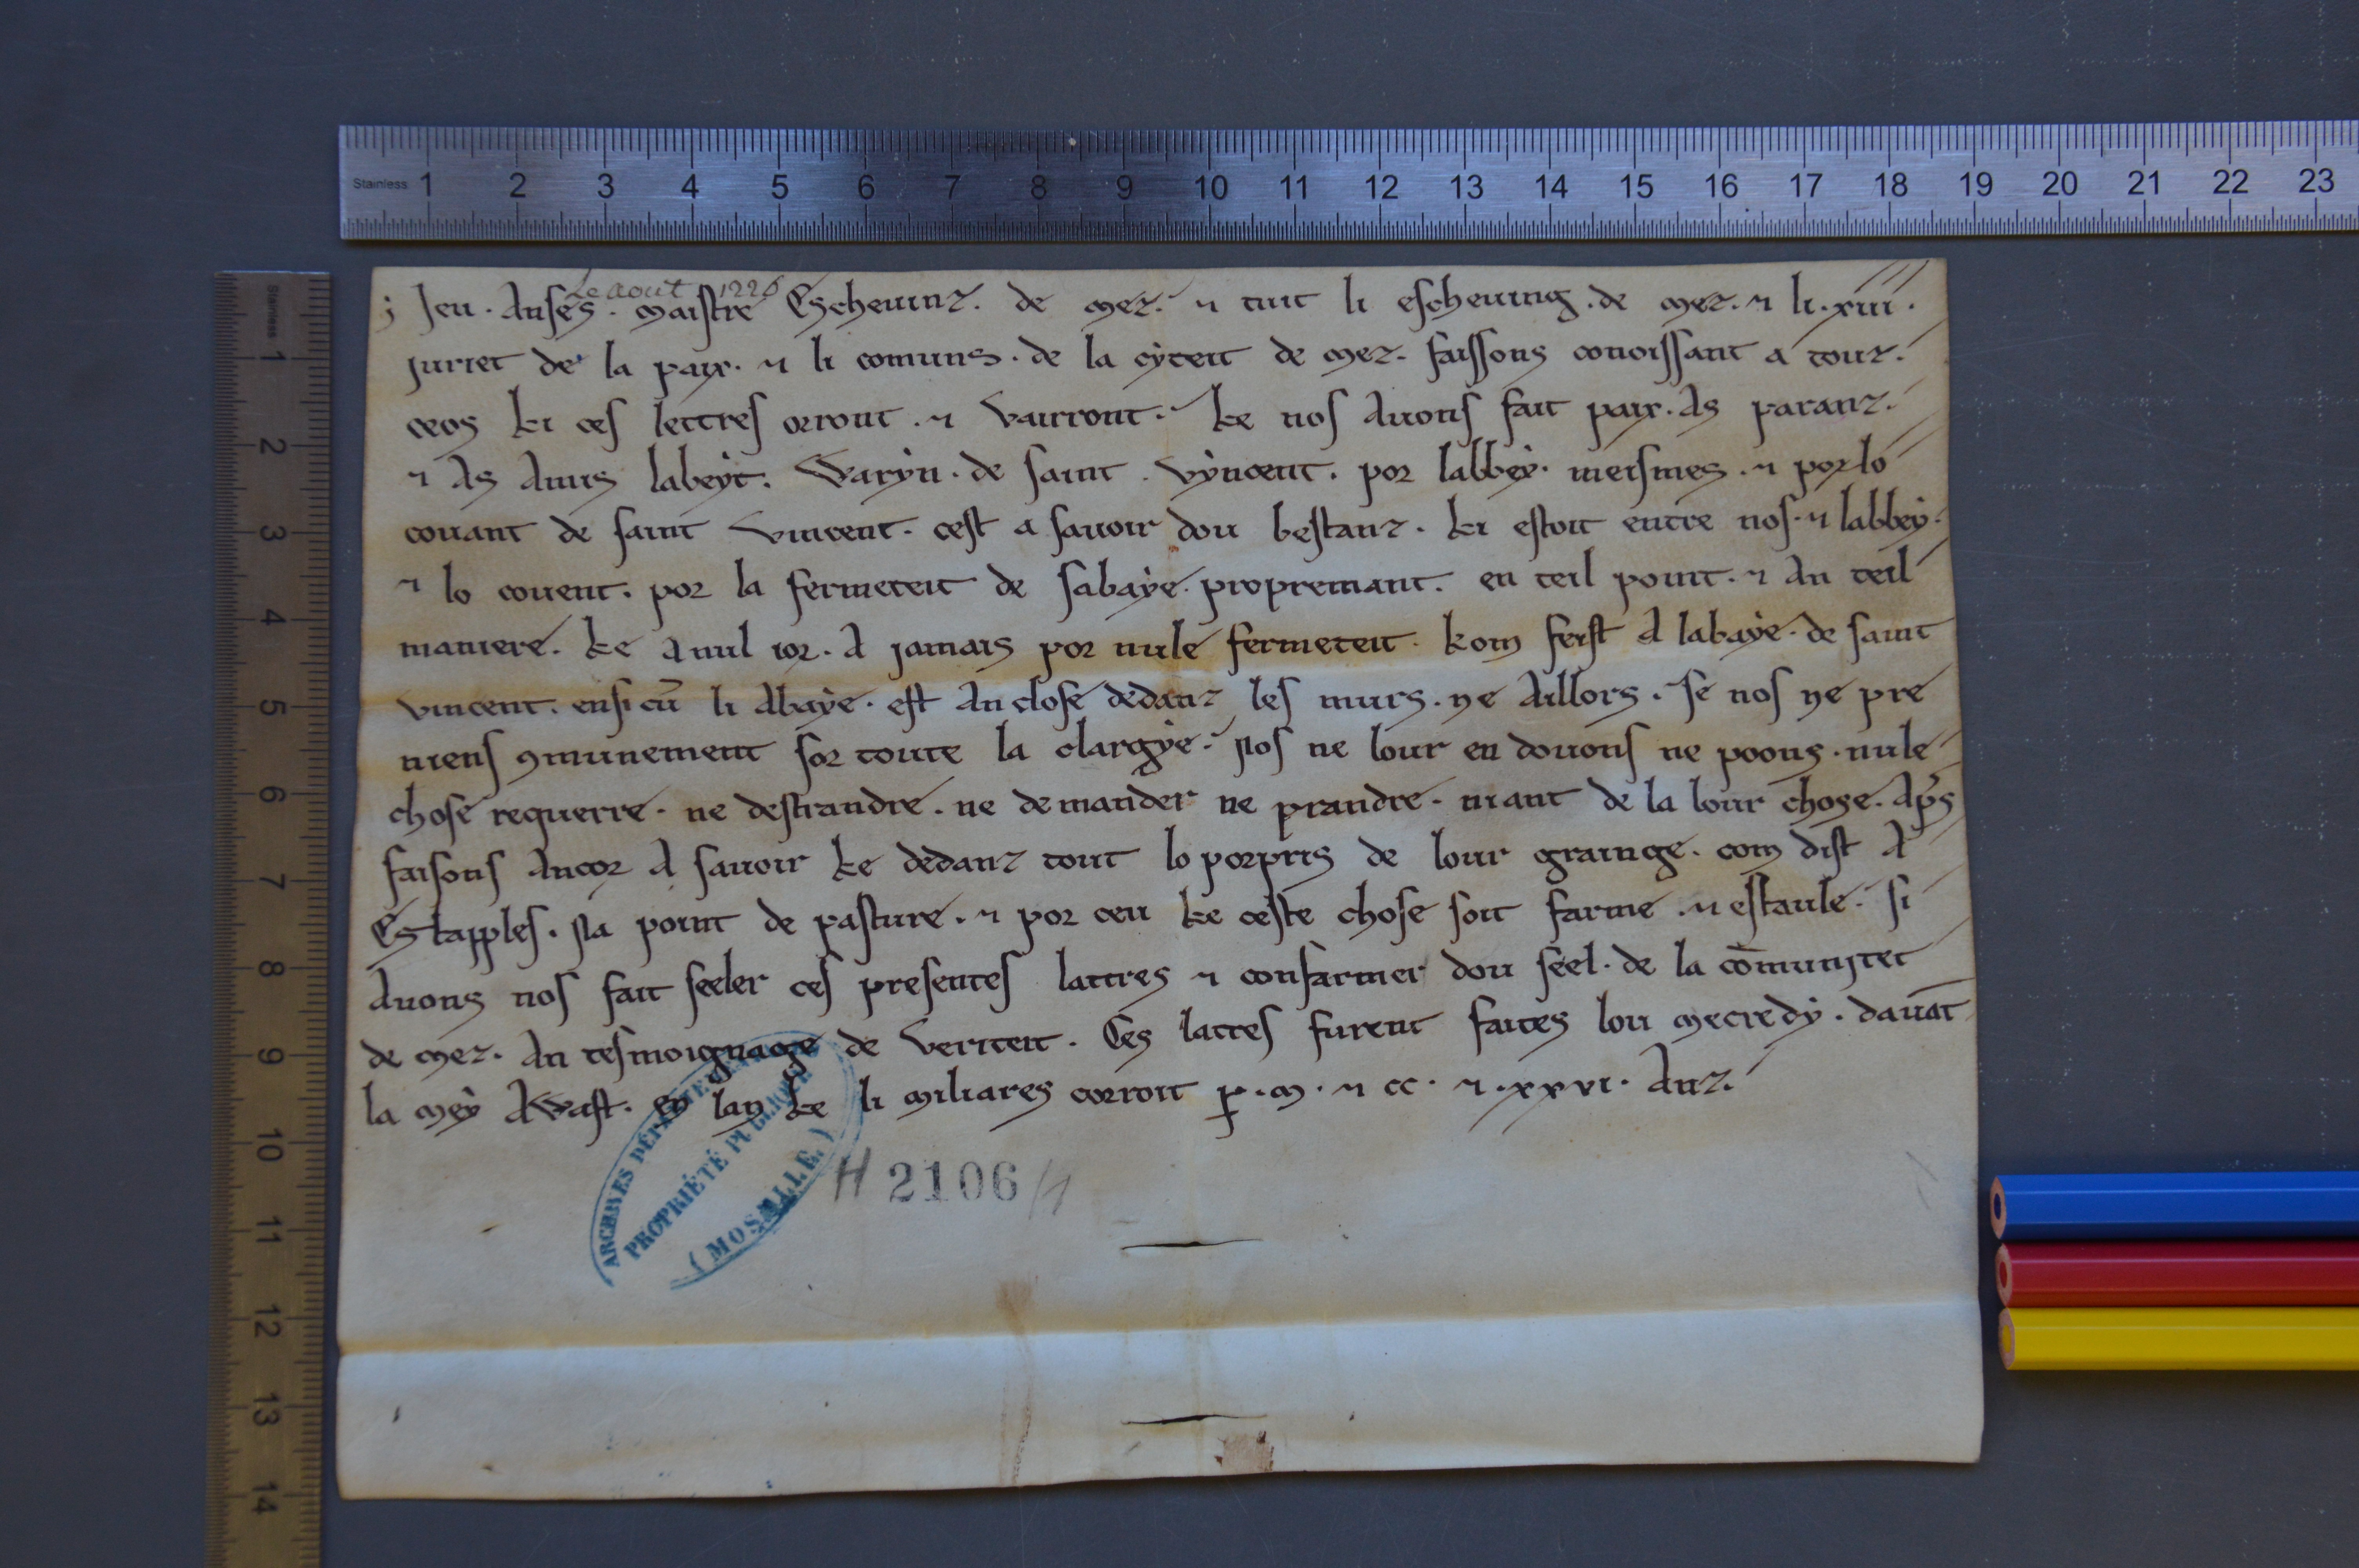 Stainless 1 2 3 4 5 6 7 8 9 10 11 12 13 14 15 16 17 18 19 20 21 22 23
Stainless 1 2 3 4 5 6 7 8 9 10 11 12 13 14
Le aout 1226
Jeu · Anses · maistre Escheuinz · de mez · ⁊ tuit li escheuing · de mez · ⁊ li · xiii ·
juriet de la paix · ⁊ li comuns · de la cyteit de mez · faissons conoissant a touz ·
ceos ki ces lettres orront · ⁊ vairront · ke nos auons fait paix · As paranz ·
⁊ As Amis labeyt · Waryn · de saint · vyncent · por labbey · meismes · ⁊ por lo
couant de saint vincent · cest a sauoir dou bestanz · ki estoit entre nos · ⁊ labbey ·
⁊ lo couent · por la fermeteit de sabaye · propremant · en teil point · ⁊ An teil
maniere · ke A nul ior · A jamais por nule fermeteit · kom feist A labaye · de saint
vincent · ensi cū li Abaye · est An close dedanz les murs · ne Aillors · Se nos ne pre
niens ꝯmunement sor toute la clargye · Nos ne lour en douons ne poons · nule
chose requerre · ne destrandre · ne demander ne prandre · niant de la lour chose · Ap̄s
faisons Ancor A sauoir ke dedanz tout lo porpris de lour grainge · com dist A
Estapples · Na point de pasture · ⁊ por ceu ke ceste chose soit farme · ⁊ estaule · si
Auons nos fait seeler ces presentes lattres ⁊ confarmer dou seel · de la cōmunitet
de mez · An tesmoignage de veriteit · Ces lattes furent faites lou mecredy · dauāt
la mey Awast · en lan ke li miliares corroit p̱ · m · ⁊ cc · ⁊ · xxvi · Anz ·
ARCHIVES DÉPARTEMENTALES
PROPRIÉTÉ PUBLIQUE
(MOSELLE)
H 2106/1